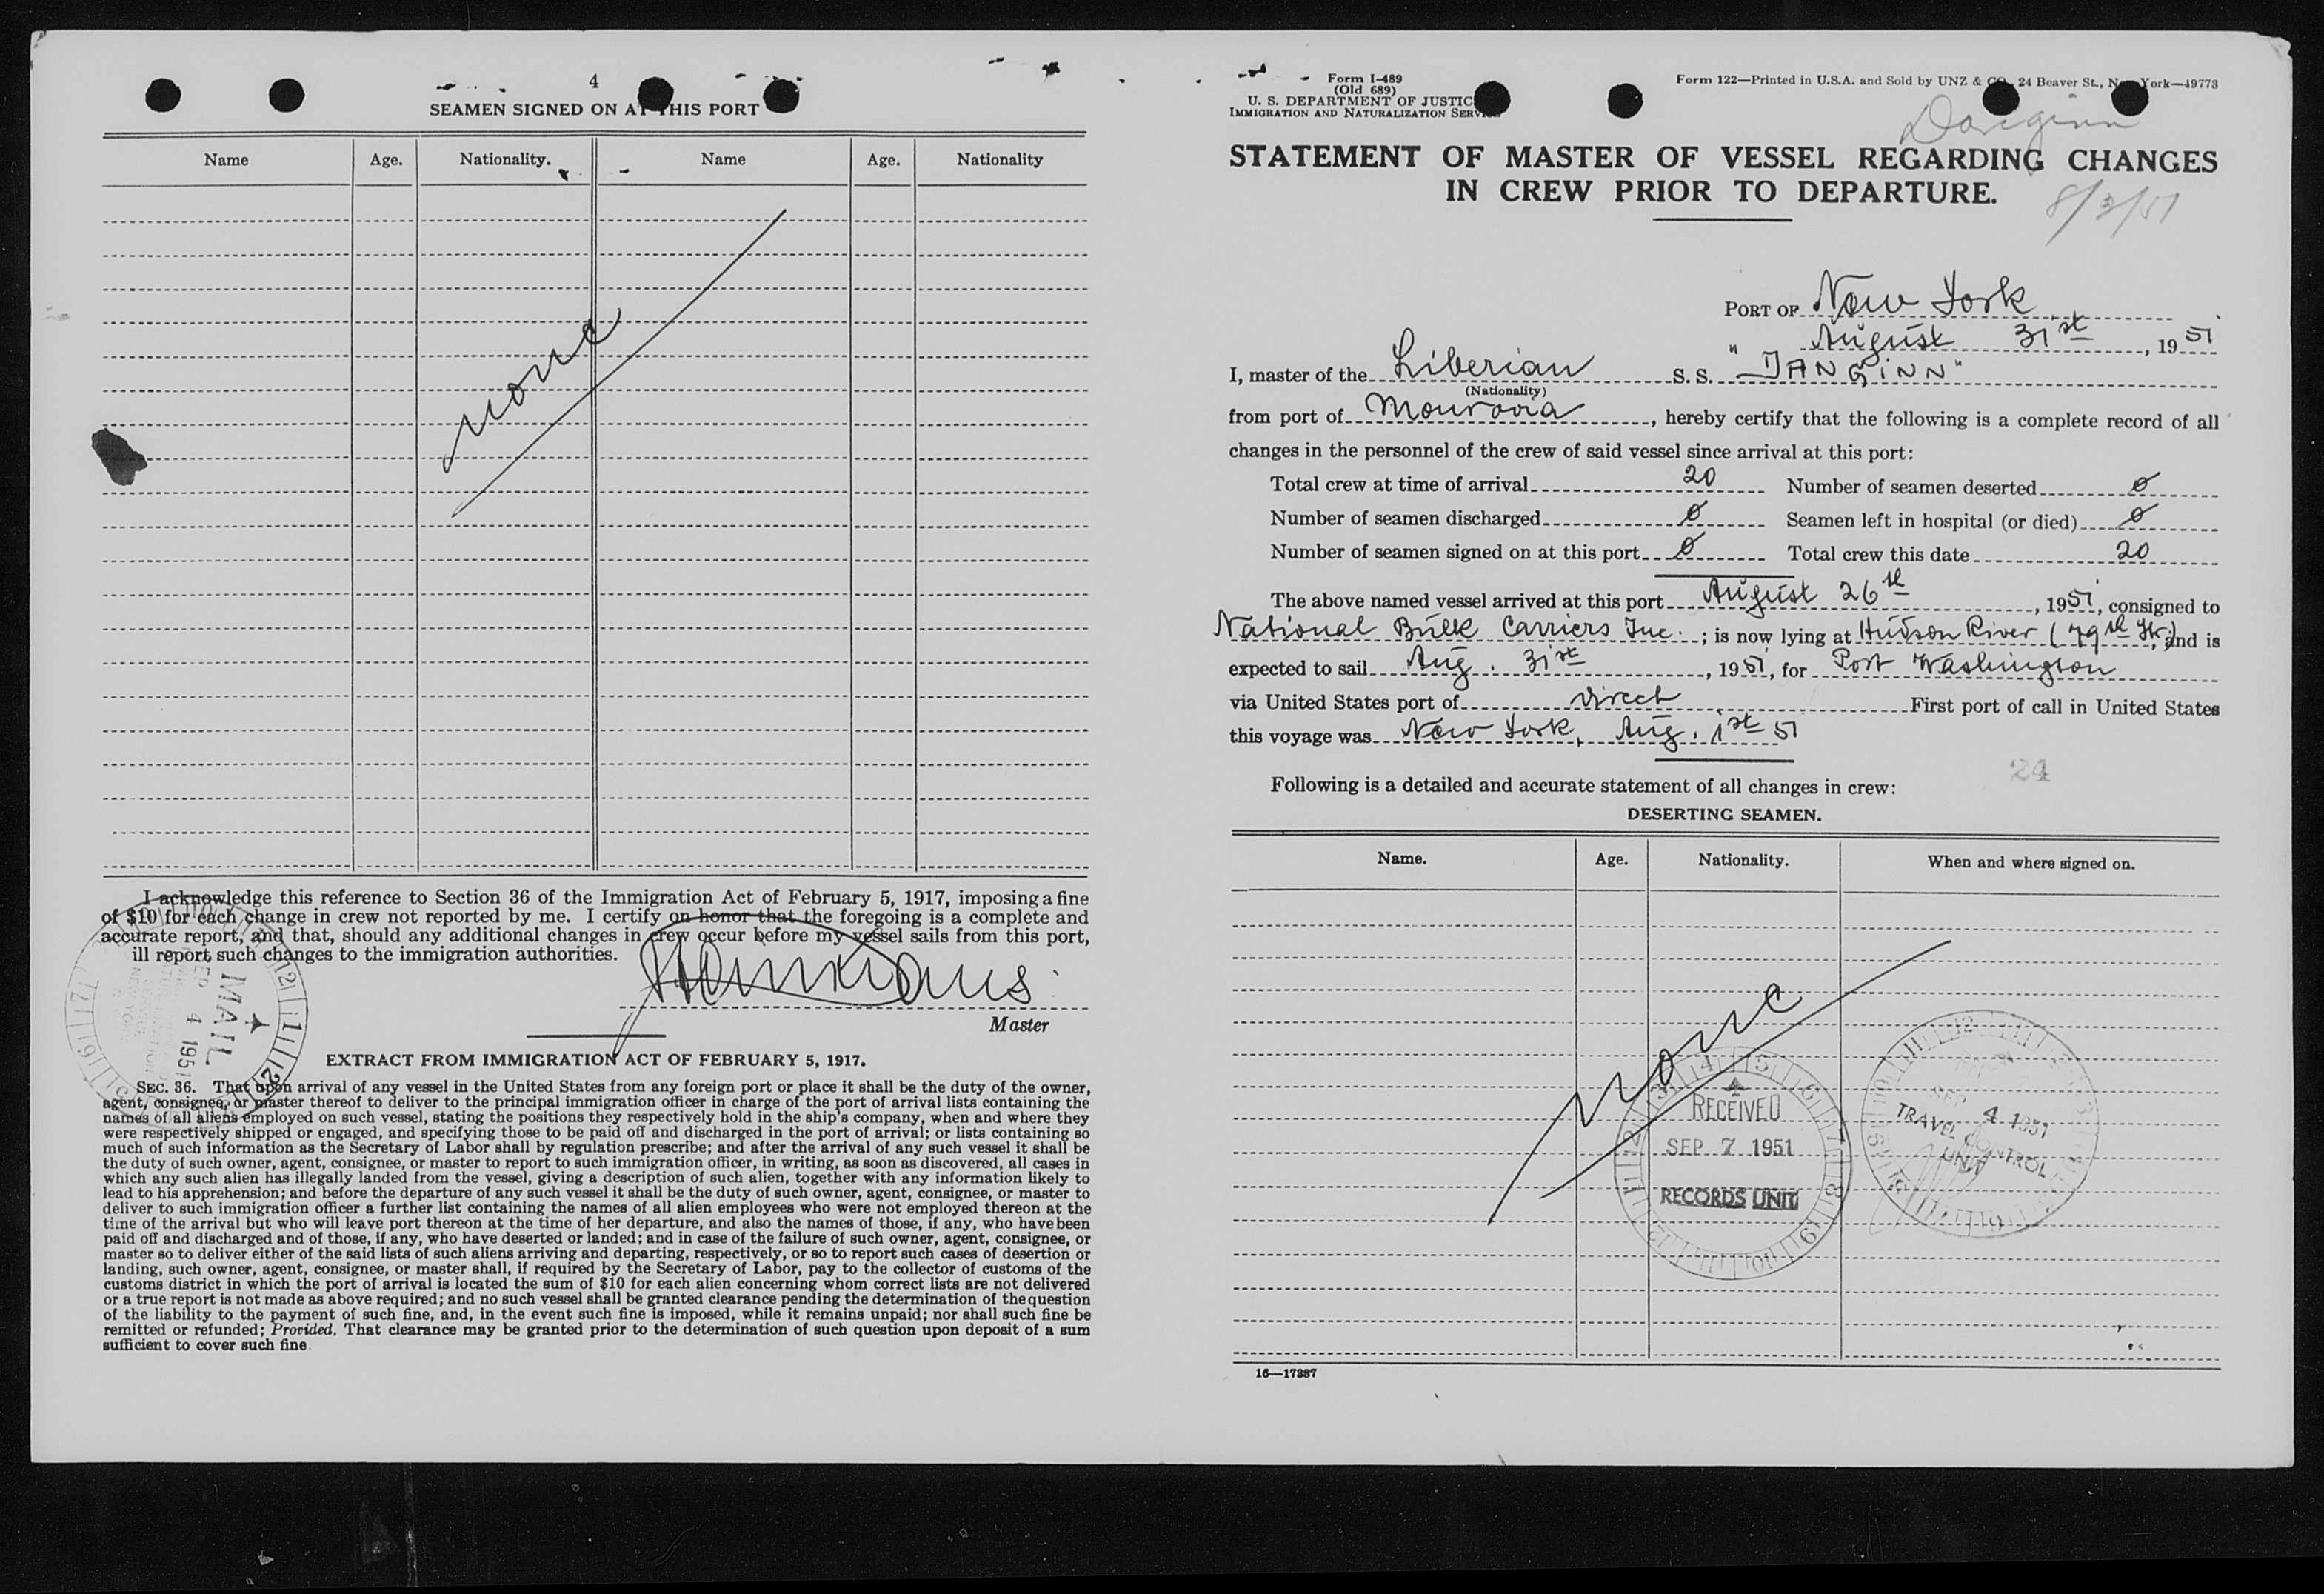 4
SEAMEN SIGNED ON AT THIS PORT
Name Age. Nationality. Name Age. Nationality
none
I acknowledge this reference to Section 36 of the Immigration Act of February 5, 1917, imposing a fine
of $10 for each change in crew not reported by me. I certify on honor that the foregoing is a complete and
accurate report, and that, should any additional changes in crew occur before my vessel sails from this port,
ill report such changes to the immigration authorities.
MAIL
4 1951
Master
EXTRACT FROM IMMIGRATION ACT OF FEBRUARY 5, 1917.
SEC. 36. That upon arrival of any vessel in the United States from any foreign port or place it shall be the duty of the owner,
agent, consignee, or master thereof to deliver to the principal immigration officer in charge of the port of arrival lists containing the
names of all aliens employed on such vessel, stating the positions they respectively hold in the ship's company, when and where they
were respectively shipped or engaged, and specifying those to be paid off and discharged in the port of arrival; or lists containing so
much of such information as the Secretary of Labor shall by regulation prescribe; and after the arrival of any such vessel it shall be
the duty of such owner, agent, consignee, or master to report to such immigration officer, in writing, as soon as discovered, all cases in
which any such alien has illegally landed from the vessel, giving a description of such alien, together with any information likely to
lead to his apprehension; and before the departure of any such vessel it shall be the duty of such owner, agent, consignee, or master to
deliver to such immigration officer a further list containing the names of all alien employees who were not employed thereon at the
time of the arrival but who will leave port thereon at the time of her departure, and also the names of those, if any, who have been
paid off and discharged and of those, if any, who have deserted or landed; and in case of the failure of such owner, agent, consignee, or
master so to deliver either of the said lists of such aliens arriving and departing, respectively, or so to report such cases of desertion or
landing, such owner, agent, consignee, or master shall, if required by the Secretary of Labor, pay to the collector of customs of the
customs district in which the port of arrival is located the sum of $10 for each alien concerning whom correct lists are not delivered
or a true report is not made as above required; and no such vessel shall be granted clearance pending the determination of the question
of the liability to the payment of such fine, and, in the event such fine is imposed, while it remains unpaid; nor shall such fine be
remitted or refunded; Provided, That clearance may be granted prior to the determination of such question upon deposit of a sum
sufficient to cover such fine.
Form I-489
(Old 689)
U. S. DEPARTMENT OF JUSTIC
IMMIGRATION AND NATURALIZATION SERVICE
Form 122—Printed in U.S.A. and Sold by UNZ & CO. 24 Beaver St., New York—49773
Danginn
STATEMENT OF MASTER OF VESSEL REGARDING CHANGES
IN CREW PRIOR TO DEPARTURE.
8/3/51
PORT OF New York
August 31st, 1951
I, master of the Liberian S. S. "DANGINN"
(Nationality)
from port of Monrovia, hereby certify that the following is a complete record of all
changes in the personnel of the crew of said vessel since arrival at this port:
Total crew at time of arrival 20 Number of seamen deserted 0
Number of seamen discharged 0 Seamen left in hospital (or died) 0
Number of seamen signed on at this port 0 Total crew this date 20
The above named vessel arrived at this port August 26th, 1951, consigned to
National Bulk Carriers Inc.; is now lying at Hudson River (79th Str.), and is
expected to sail Aug. 31st, 1951, for Port Washington
via United States port of direct First port of call in United States
this voyage was New York, Aug. 1st 51
24
Following is a detailed and accurate statement of all changes in crew:
DESERTING SEAMEN.
Name. Age. Nationality. When and where signed on.
none
RECEIVED
SEP 7 1951
RECORDS UNIT
SEP 4 1951
TRAVEL CONTROL
UNIT
16—17387